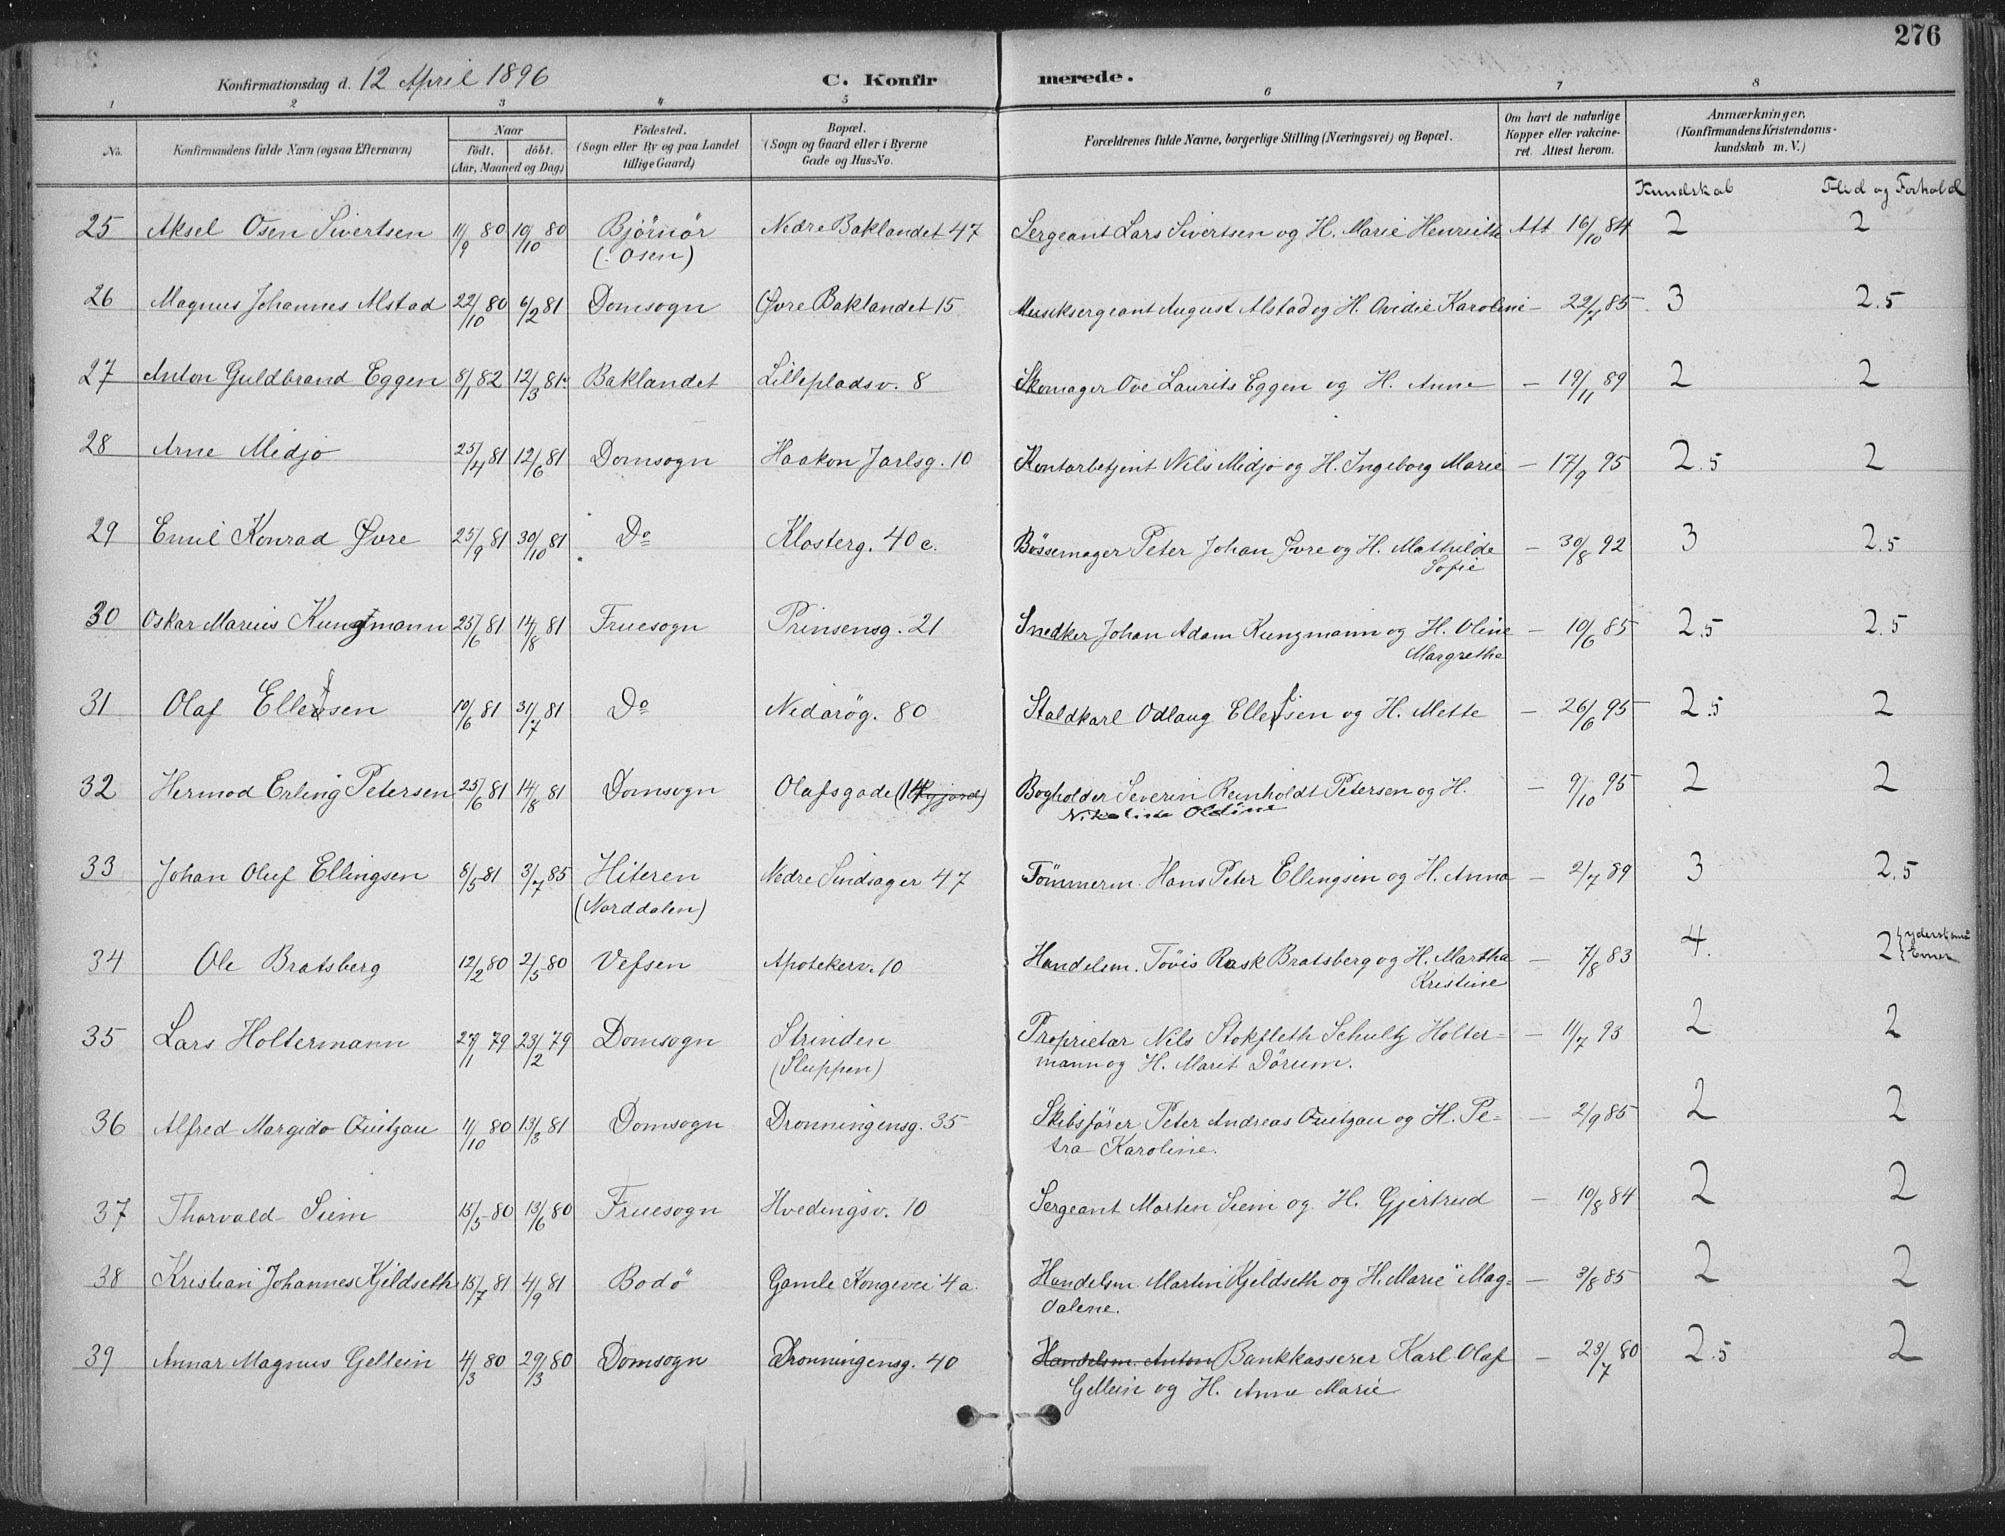 276
Konfirmationsdag d. 12 April 1896 C. Konfir merede.
1 2 3 4 5 6 7 8
No. Konfirmandens fulde Navn (ogsaa Efternavn) Naar Födt. döbt. (Aar, Maaned og Dag) Födested. (Sogn eller By og paa Landet tillige Gaard) Bopæl. (Sogn og Gaard eller i Byerne Gade og Hus-No. Forældrenes fulde Navne, borgerlige Stilling (Næringsvei) og Bopæl. Om havt de naturlige Kopper eller vakcineret. Attest herom. Anmærkninger. (Konfirmandens Kristendomskundskab m. V.)
Kundskab Flid og Forhold
25 Aksel Osen Sivertsen 11/9 80 10/10 80 Björnör Nedre Baklandet 47 Sergeant Lars Sivertsen og H. Marie Henriette Att 16/10 84 2 2
(: Osen)
26 Magnus Johannes Alstad 22/10 80 6/2 81 Domsogn Øvre Baklandet 15 Musiksergeant August Alstad og H. Ovidie Karoline — 22/7 85 3 2.5
27 Anton Guldbrand Eggen 8/1 82 12/3 81 Baklandet Lillepladsv. 8 Skomager Ove Laurits Eggen og H. Anne — 19/11 89 2 2
28 Arne Midjo 25/4 81 12/6 81 Domsogn Haakon Jarlsg. 10 Kontorbetjent Nils Midjo og H. Ingeborg Marie — 17/9 95 2.5 2
29 Emil Konrad Øvre 25/9 81 30/10 81 Do Klosterg. 40 c. Bössemager Peter Johan Øvre og H. Mathilde — 30/8 92 3 2.5
Sofie
30 Oskar Marius Kungmann 25/6 81 14/8 81 Fruesogn Prinsensg. 21 Snedker Johan Adam Kungmann og H. Oline — 10/6 85 2.5 2.5
Margrethe
31 Olaf Ellefsen 10/6 81 31/7 81 Do Nidarög. 80 Staldkarl Odlaug Ellefsen og H. Mette — 26/6 95 2.5 2
32 Hermod Erling Petersen 25/6 81 14/8 81 Domsogn Olafsgade 14 Bogholder Severin Reinholdt Petersen og H. — 9/10 95 2 2
Nikoline Oldine
33 Johan Oluf Ellingsen 8/5 81 3/7 85 Hiteren Nedre Sindsager 47 Tömmerm. Hans Peter Ellingsen og H. Anna — 2/7 89 3 2.5
(Norddalen)
34 Ole Bratsberg 12/2 80 2/5 80 Vefsen Apotekerv. 10 Handelsm. Tövis Rask Bratsberg og H. Martha — 7/8 83 4. 2 yderst små Evner
Kristine
35 Lars Holtermann 27/1 79 23/2 79 Domsogn Strinden Proprietær Nils Stokfleth Schultz Holter- — 11/7 93 2 2
(Sluppen) mann og H. Marit Dörum.
36 Alfred Margido Quitzau 11/10 80 13/3 81 Domsogn Dronningensg. 35 Skibsförer Peter Andreas Quitzau og H. Pe- — 2/9 85 2 2
tra Karoline.
37 Thorvald Siem 15/5 80 13/6 80 Fruesogn Hvedingsv. 10 Sergeant Morten Siem og H. Gjertrud — 10/8 84 2 2
38 Kristian Johannes Kjeldseth 15/7 81 4/9 81 Bodö Gamle Kongevei 4 a. Handelsm. Martin Kjeldseth og H. Marie Mag- — 3/8 85 2 2
dalene.
39 Annar Magnus Gellein 4/3 80 29/3 80 Domsogn Dronningensg. 40 Handelsm. Anton Bankkasserer Karl Olaf — 23/7 80 2.5 2
Gellein og H. Anne Marie